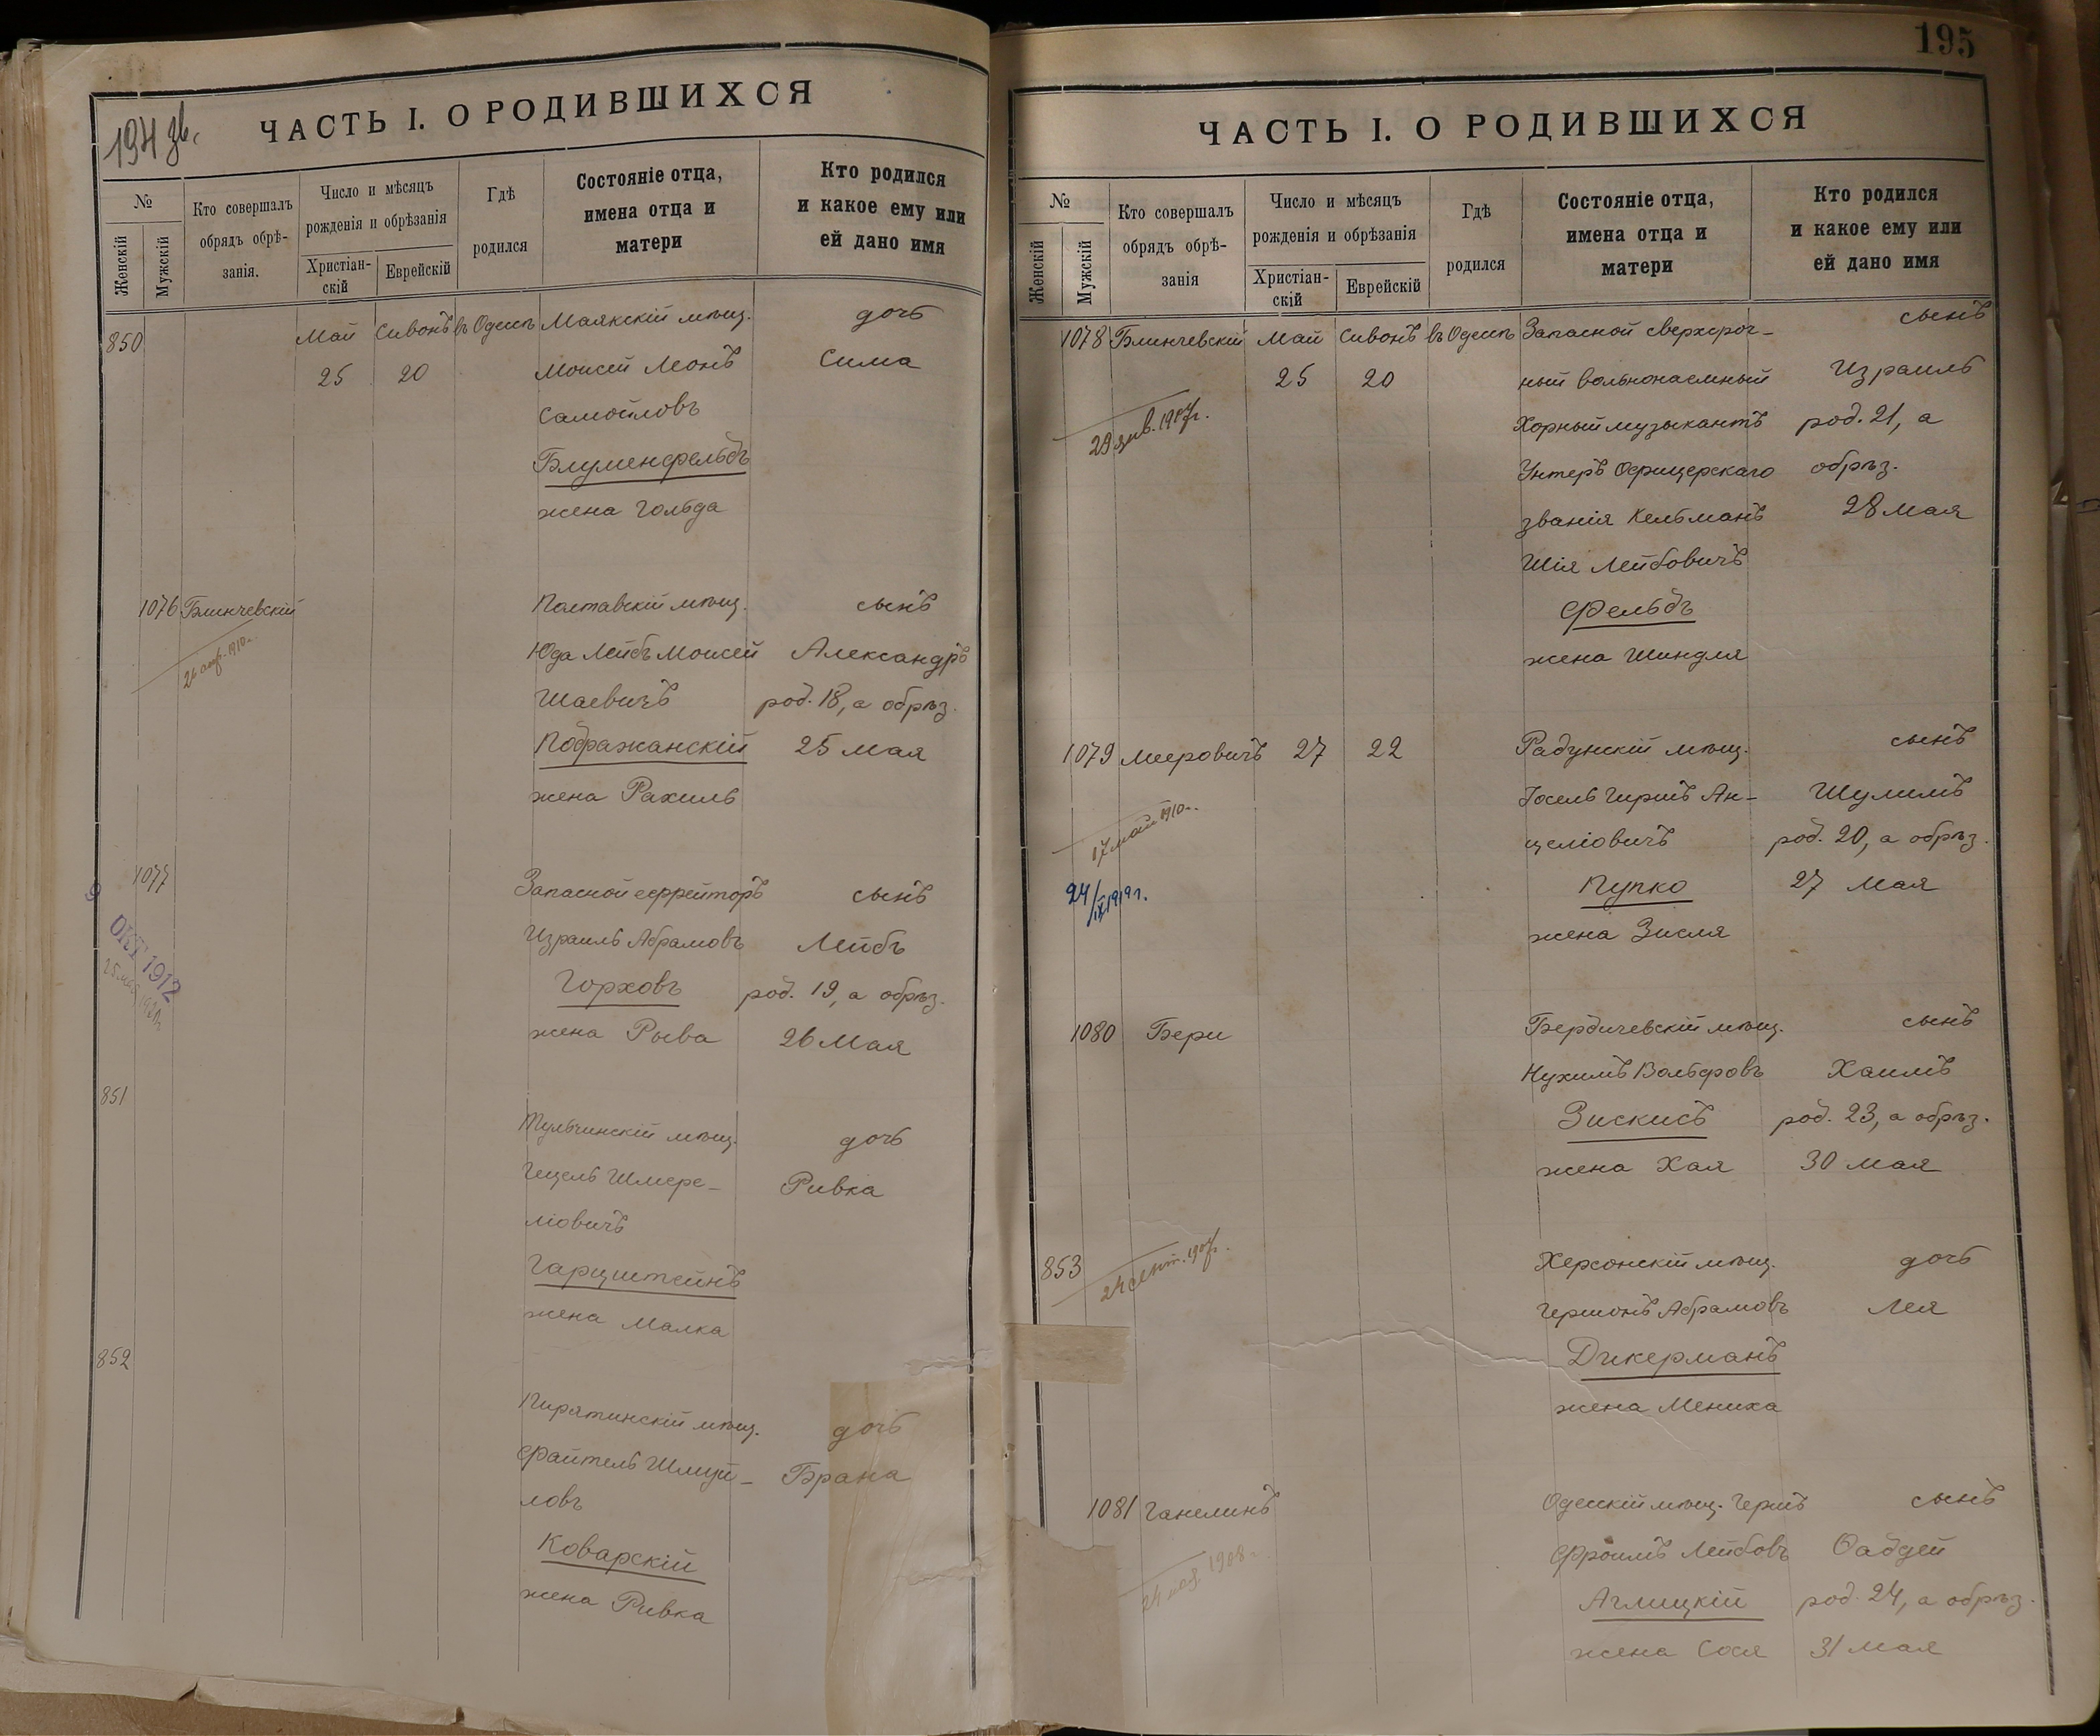 194 зв.
ЧАСТЬ I. О РОДИВШИХСЯ
№
Женскій
Мужскій
Кто совершалъ
обрядъ обрѣ-
занія.
Число и мѣсяцъ
рожденія и обрѣзанія
Христіан-
скій
Еврейскій
Гдѣ
родился
Состояніе отца,
имена отца и
матери
Кто родился
и какое ему или
ей дано имя
850 Май Сивонъ въ Одессѣ Маякскій мѣщ. дочь
25 20 Моисей Леонъ Сима
Самойловъ
Блуменфельдъ
жена Гольда
1076 Блинчевскій Полтавскій мѣщ. сынъ
26 апр. 1910 г. Юда Лейбъ Моисей Александръ
Шаевичъ род. 18, а обрѣз.
Пображанскій 25 мая
жена Рахиль
1077 Запасной ефрейторъ сынъ
9 ОКТ 1912 Израиль Абрамовъ Лейбъ
Горховъ род. 19, а обрѣз.
жена Рыва 26 Мая
851 Тульчинскій мѣщ. дочь
Гецель Шмере- Ривка
ліовичъ
Гарцштейнъ
жена Малка
852 Пирятинскій мѣщ. дочь
Файтель Шмуй- Брана
ловъ
Коварскій
жена Ривка
195
ЧАСТЬ I. О РОДИВШИХСЯ
№
Женскій
Мужскій
Кто совершалъ
обрядъ обрѣ-
занія
Число и мѣсяцъ
рожденія и обрѣзанія
Христіан-
скій
Еврейскій
Гдѣ
родился
Состояніе отца,
имена отца и
матери
Кто родился
и какое ему или
ей дано имя
1078 Блинчевскій Май Сивонъ въ Одессѣ Запасной сверхсроч- сынъ
25 20 ный вольнонаемный Израиль
Хорный музыкантъ род. 21, а
Унтеръ Офицерскаго обрѣз.
званія Кельманъ 28 мая
Шія Лейбовичъ
Фельдъ
жена Шиндля
1079 Мееровичъ 27 22 Радунскій мѣщ. сынъ
Іосель Гиршъ Ан- Шулимъ
17 мая 1910 г. целіовичъ род. 20, а обрѣз.
24/IX 1919 г. Пупко 27 Мая
жена Зисля
1080 Бери Бердичевскій мѣщ. сынъ
Нухимъ Вольфовъ Хаимъ
Зискисъ род. 23, а обрѣз.
жена Хая 30 мая
853 24 сент. 1907 г. Херсонскій мѣщ. дочь
Гершонъ Абрамовъ Лея
Дикерманъ
жена Мениха
1081 Ганелинъ Одесскій мѣщ. Гершъ сынъ
Фроимъ Лейбовъ Фабдей
Аглицкій род. 24, а обрѣз.
жена Сося 31 мая